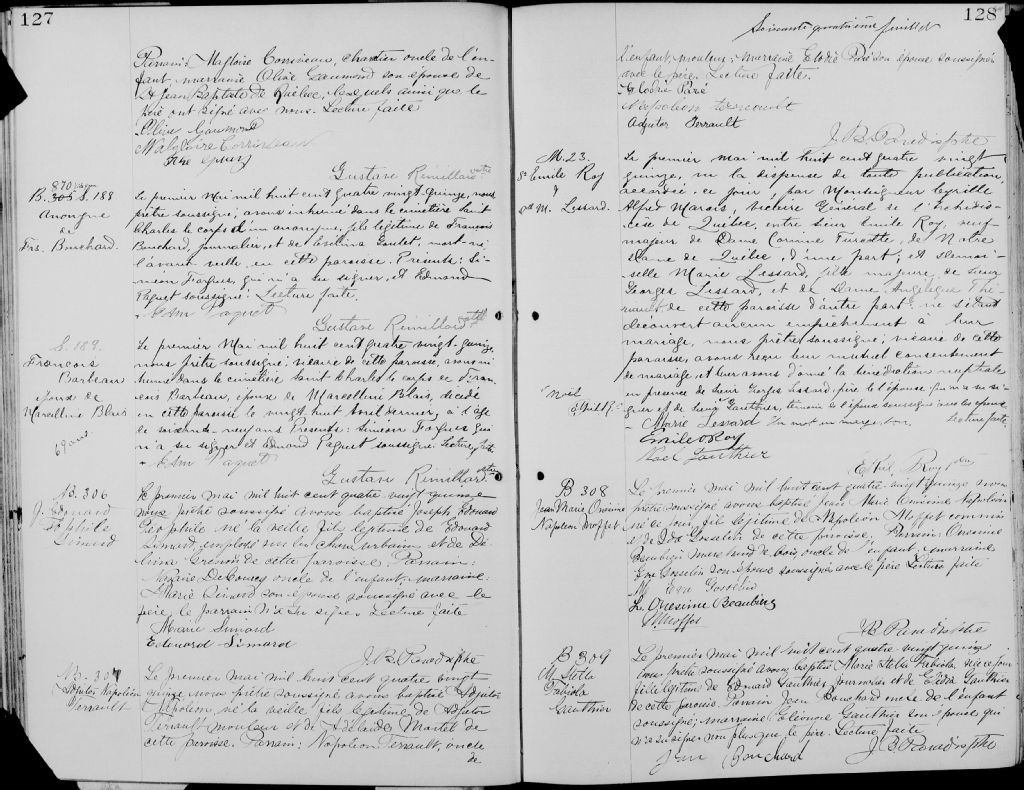 127
Parrain: Magloire Corriveau, charretier oncle de l'en-
fant, marraine Olive Gaumond son épouse de
St Jean Baptiste de Québec, lesquels ainsi que le
père ont signé avec nous. Lecture faite
Olive Gaumond
Magloire Corriveau
Gustave Rémillard
B. S. 188
Anonyme
de
Frs. Bouchard.
Le premier Mai mil huit cent quatre vingt quinze, nous
prêtre soussigné, avons inhumé dans le cimetière Saint
Charles le corps d'un anonyme, fils légitime de François
Bouchard, journalier, et de Goulet, mort-né
l'avant veille en cette paroisse. Présents: Si-
méon Fargues, qui n'a su signer, et Edmond
Paquet soussigné. Lecture faite.
Edm Paquet
Gustave Rémillard
S. 189.
François
Barbeau
époux de
Marcelline Blais
69 ans.
Le premier Mai mil huit cent quatre vingt-quinze,
nous prêtre soussigné, vicaire de cette paroisse, avons in-
humé dans le cimetière Saint Charles le corps de Fran-
çois Barbeau, époux de Marcelline Blais, décédé
en cette paroisse le vingt huit Avril dernier, à l'âge
de soixante-neuf ans. Présents: Siméon Fargues qui
n'a su signer et Edmond Paquet soussigné. Lecture faite.
Edm Paquet
Gustave Rémillard
B. 306
J. Edouard
Théophile
Simard
Le premier mai mil huit cent quatre vingt quinze
nous prêtre soussigné avons baptisé Joseph Edouard
Théophile né la veille fils légitime de Edouard
Simard, employé sur les chars urbains et de Dé-
lima Grenon de cette paroisse. Parrain:
Nazaire DeCoucy oncle de l'enfant, marraine:
Marie Simard son épouse soussignée avec le
père, le parrain n'a su signer. Lecture faite
Marie Simard
Edouard Simard
J. B. Paradis ptre
B. 307
Adjutor Napoléon
Perrault
Le premier mai mil huit cent quatre vingt
quinze nous prêtre soussigné avons baptisé Adjutor
Napoléon, né la veille fils légitime de Adjutor
Perrault mouleur et de Adélaïde Martel de
cette paroisse. Parrain: Napoléon Perrault, oncle
de
Soixante quatrième feuillet
128
l'enfant, mouleur, marraine Elodie Paré son épouse soussignés
avec le père. Lecture faite.
Elodie Paré
Napoléon Perreault
Adjutor Perrault
J. B. Paradis ptre
M. 23.
Sr Emile Roy
&
Dlle M. Lessard.
Le premier mai mil huit cent quatre vingt
quinze, vu la dispense de toute publication,
accordée ce jour par Monseigneur Cyrille
Alfred Marois, Vicaire Général de l'Archidio-
cèse de Québec, entre sieur Emile Roy, veuf
majeur de Dame Corinne Turcotte, de Notre
Dame de Québec, d'une part; et Demoi-
selle Marie Lessard, fille majeure de sieur
Georges Lessard, et de Dame Angélique Thé-
riault de cette paroisse d'autre part; ne s'étant
découvert aucun empêchement à leur
mariage, nous prêtre soussigné, vicaire de cette
paroisse, avons reçu leur mutuel consentement
de mariage, et leur avons donné la bénédiction nuptiale
en présence de sieur Georges Lessard, père de l'épouse qui n'a su si-
gner et de sieur Gauthier, témoin de l'époux soussigné avec les époux.
Noël
Marie Lessard Un mot en marge bon. Lecture faite.
Emile Roy
Noël Gauthier
B 308
Jean Marie Onésime
Napoléon Moffet
Le premier mai mil huit cent quatre vingt quinze nous
prêtre soussigné avons baptisé Jean Marie Onésime Napoléon
né ce jour fils légitime de Napoléon Moffet commis
et de Ida Gosselin de cette paroisse. Parrain: Onésime
Beaubien marchand de bois, oncle de l'enfant; marraine
Eva Gosselin son épouse soussignés avec le père Lecture faite
M Eva Gosselin
Onésime Beaubien
Moffet
J B Paradis ptre
B 309
M. Stella
Fabiola
Gauthier
Le premier mai mil huit cent quatre vingt quinze
nous prêtre soussigné avons baptisé Marie Stella Fabiola née ce jour
fille légitime de Edouard Gauthier journalier et de Elida Gauthier
de cette paroisse. Parrain Jean Bouchard oncle de l'enfant
soussigné; marraine Eléonore Gauthier son épouse qui
n'a su signer non plus que le père. Lecture faite
Jean Bouchard
J B Paradis ptre